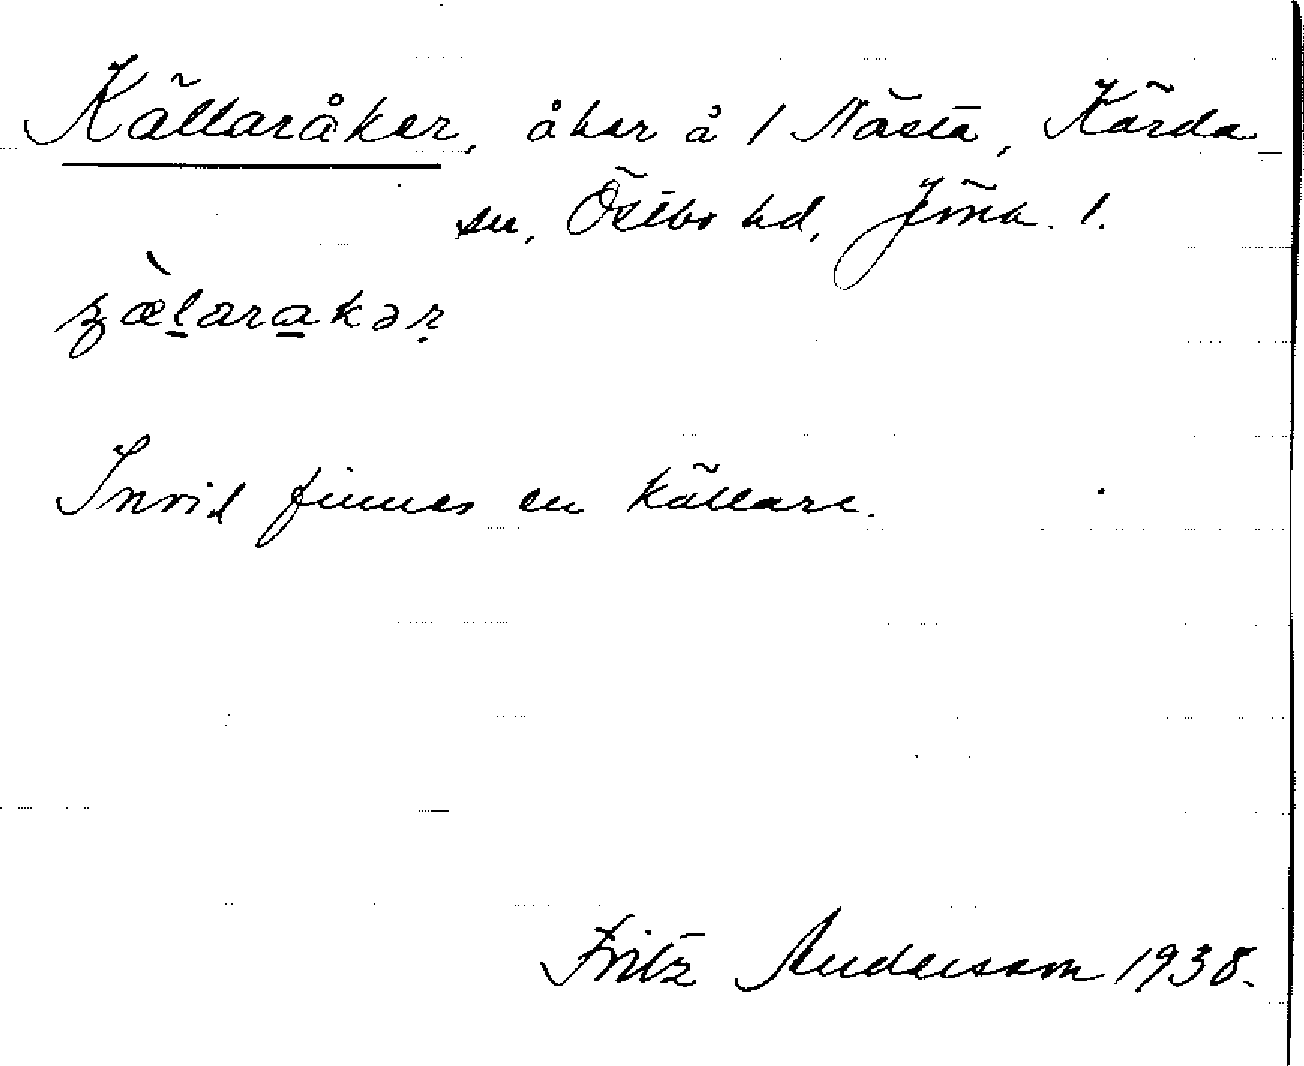 Källaråker, åker å 1 Nästa, Kärda
sn, Östbo hd, Jönk. l.
Invid finnes en källare.
Fritz Andersson 1938.